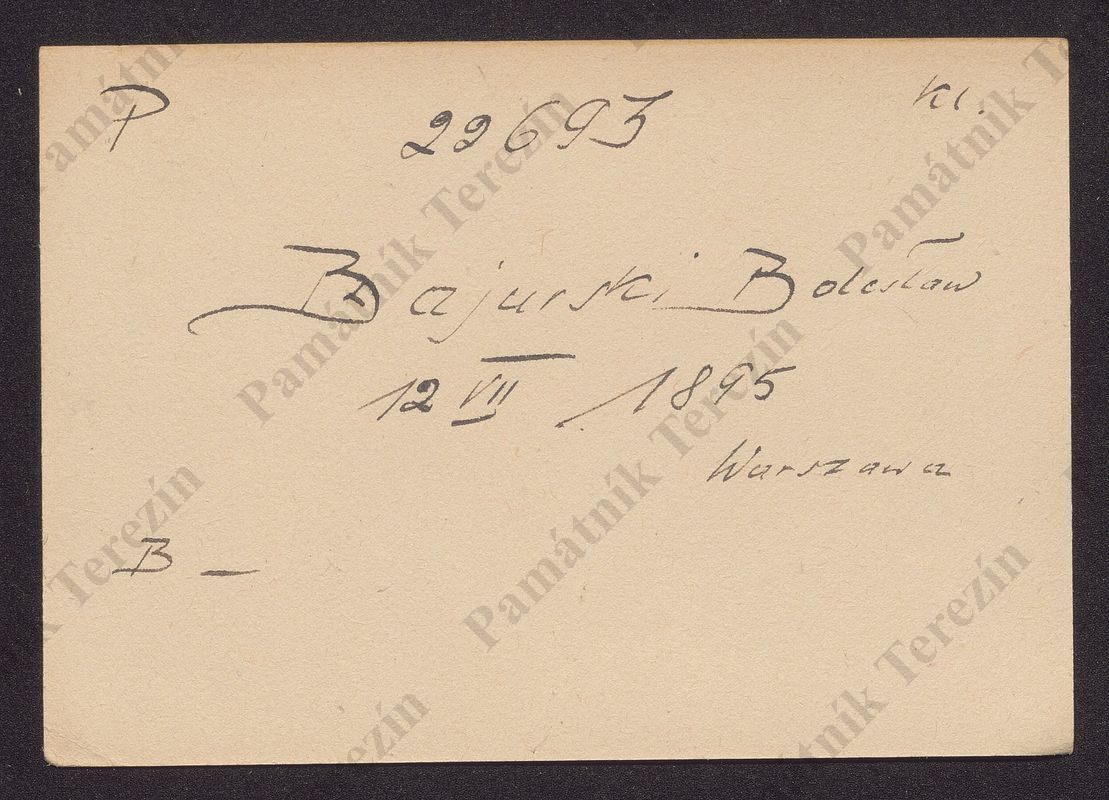 P 22693 Kl.
Bajurski Bolesław
12 VII 1895
Warszawa
B —
Památník Terezín